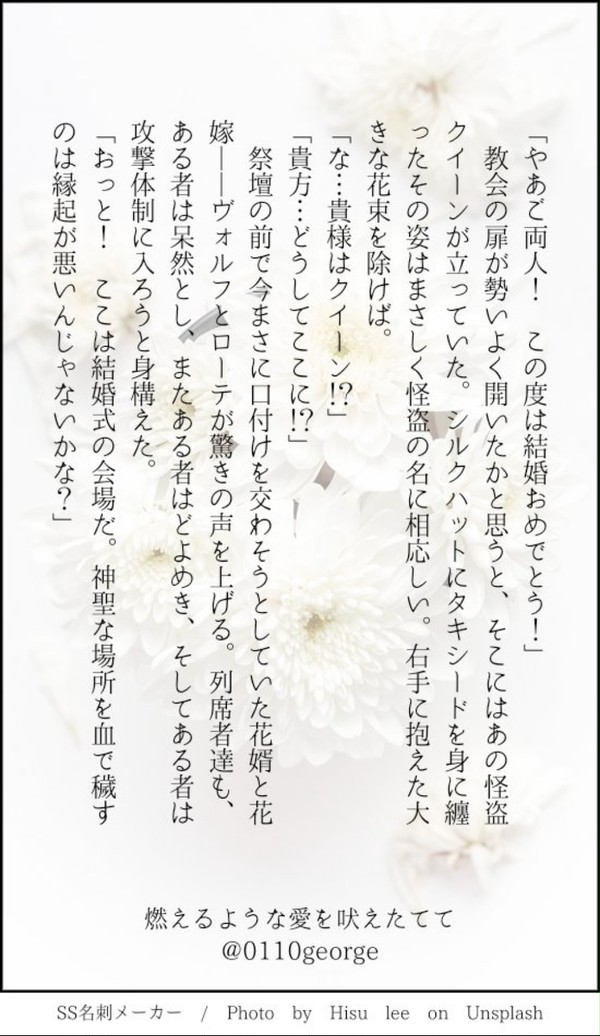 「やあご両人！　この度は結婚おめでとう！」
　教会の扉が勢いよく開いたかと思うと、そこにはあの怪盗
クイーンが立っていた。シルクハットにタキシードを身に纏
ったその姿はまさしく怪盗の名に相応しい。右手に抱えた大
きな花束を除けば。
「な…貴様はクイーン!?」
「貴方…どうしてここに!?」
　祭壇の前で今まさに口付けを交わそうとしていた花婿と花
嫁――ヴォルフとローテが驚きの声を上げる。列席者達も、
ある者は呆然とし、またある者はどよめき、そしてある者は
攻撃体制に入ろうと身構えた。
「おっと！　ここは結婚式の会場だ。神聖な場所を血で穢す
のは縁起が悪いんじゃないかな？」
燃えるような愛を吠えたてて
@0110george
SS名刺メーカー / Photo by Hisu lee on Unsplash